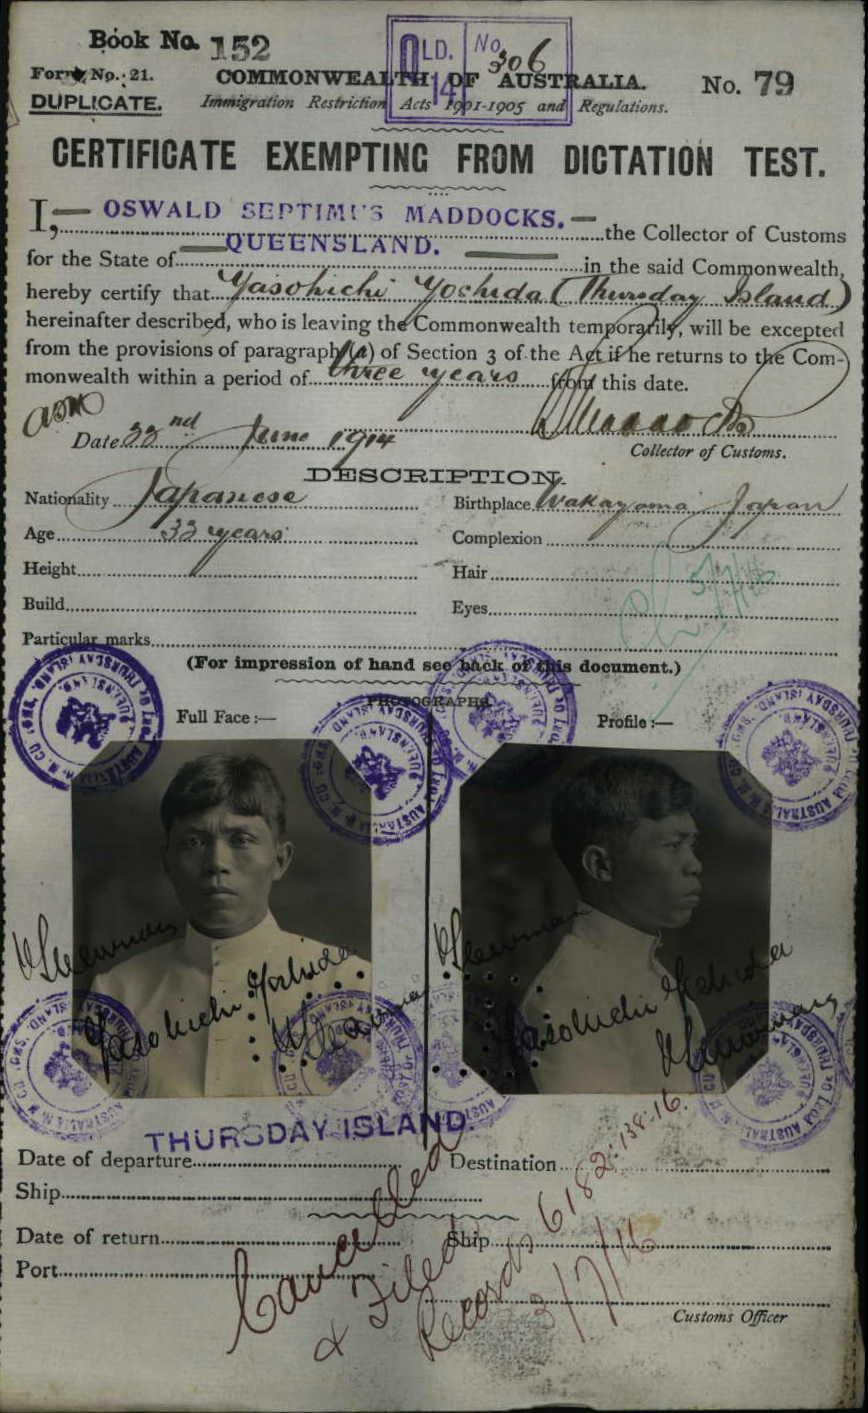 Book No. 152
QLD. No. 306
14
Form No. 21.
COMMONWEALTH OF AUSTRALIA.
No. 79
DUPLICATE.
Immigration Restriction Acts 1901-1905 and Regulations.
CERTIFICATE EXEMPTING FROM DICTATION TEST.
I, OSWALD SEPTIMUS MADDOCKS. the Collector of Customs
for the State of QUEENSLAND. in the said Commonwealth,
hereby certify that Yasohichi Yoshida (Thursday Island)
hereinafter described, who is leaving the Commonwealth temporarily, will be excepted
from the provisions of paragraph (a) of Section 3 of the Act if he returns to the Com-
monwealth within a period of three years from this date.
Date 22nd June 1914
Collector of Customs.
DESCRIPTION.
Nationality Japanese Birthplace Wakayama Japan
Age 33 years Complexion
Height Hair
Build Eyes
Particular marks
(For impression of hand see back of this document.)
PHOTOGRAPHS
Full Face :— Profile :—
Yasohichi Yoshida
Yasohichi Yoshida
THURSDAY ISLAND.
Date of departure Destination
Ship
Date of return Ship
Port
Cancelled
& Filed
Records 6182.138.16.
3/7/16
Customs Officer